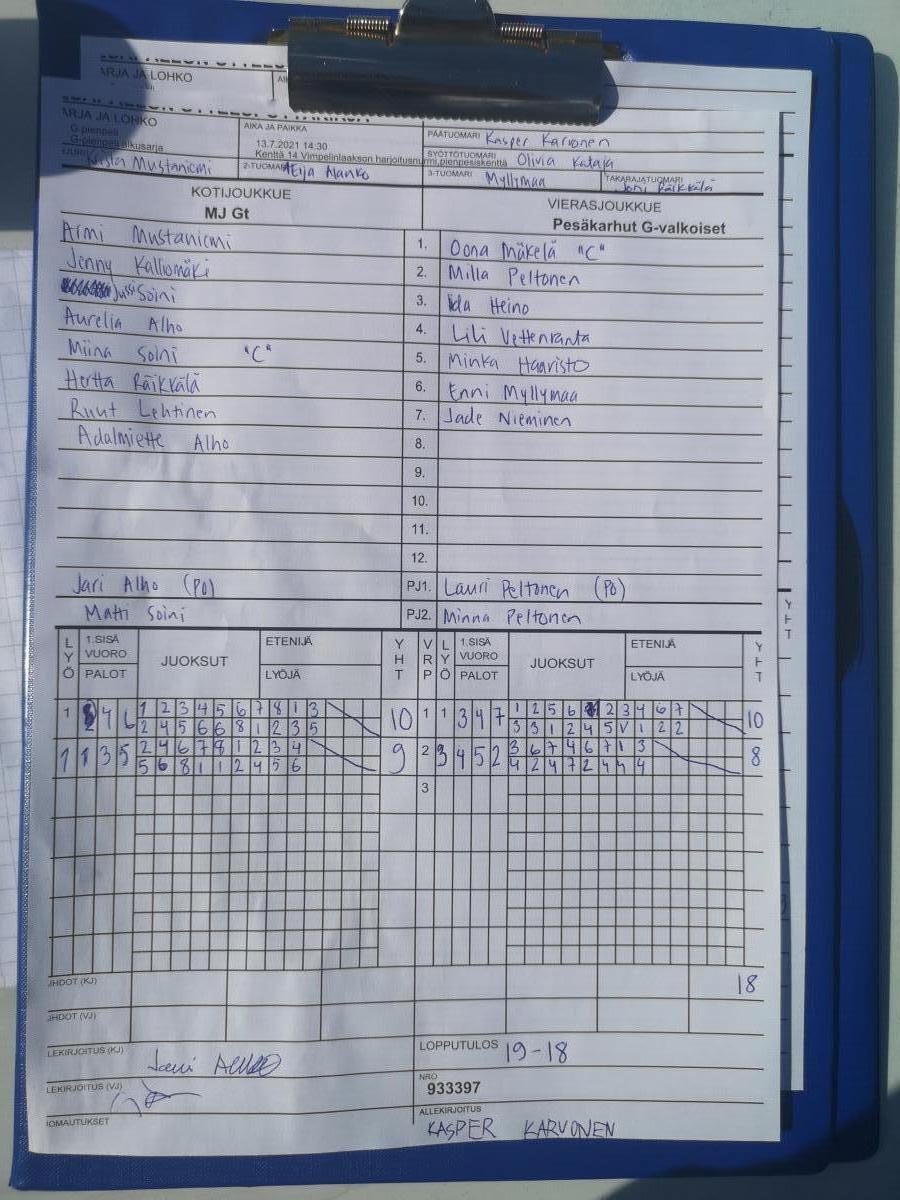 ARJA JA LOHKO
ARJA JA LOHKO
G-pienpeli
G-pienpeli alkusarja
AIKA JA PAIKKA
13.7.2021 14:30
Kenttä 14 Vimpelinlaakson harjoitusnurmi,pienpesiskenttä
PÄÄTUOMARI Kasper Karvonen
SYÖTTÖTUOMARI Olivia Kataja
Mustaniemi
2-TUOMARI Eija Alanko
3-TUOMARI Myllymaa
TAKARAJATUOMARI Joni Räikkälä
KOTIJOUKKUE
MJ Gt
VIERASJOUKKUE
Pesäkarhut G-valkoiset
Armi Mustaniemi 1. Oona Mäkelä "C"
Jenny Kalliomäki 2. Milla Peltonen
Jussi Soini 3. Ida Heino
Aurelia Alho 4. Lili Vettenranta
Miina Soini "C" 5. Minka Haaristo
Hertta Räikkälä 6. Enni Myllymaa
Ruut Lehtinen 7. Jade Nieminen
Adalmiette Alho 8.
9.
10.
11.
12.
Jari Alho (PO) PJ1. Lauri Peltonen (PO)
Matti Soini PJ2. Minna Peltonen
LYÖ 1.SISÄ VUORO PALOT JUOKSUT ETENIJÄ LYÖJÄ YHT VRP LYÖ 1.SISÄ VUORO PALOT JUOKSUT ETENIJÄ LYÖJÄ YHT
1 4 6 1 2 3 4 5 6 7 8 1 3 10 1 1 3 4 7 1 2 5 6 1 2 3 4 6 7 10
2 4 5 6 6 8 1 2 3 5 3 3 1 2 4 5 V 1 2 2
1 1 3 5 2 4 6 7 8 1 2 3 4 9 2 3 4 5 2 3 6 7 4 6 7 1 3 8
5 6 8 1 1 2 4 5 6 4 2 4 7 2 4 4 4
3
JHDOT (KJ) 18
JHDOT (VJ)
LEKIRJOITUS (KJ)
LOPPUTULOS 19-18
LEKIRJOITUS (VJ)
NRO
933397
IOMAUTUKSET
ALLEKIRJOITUS
KASPER KARVONEN
YHT